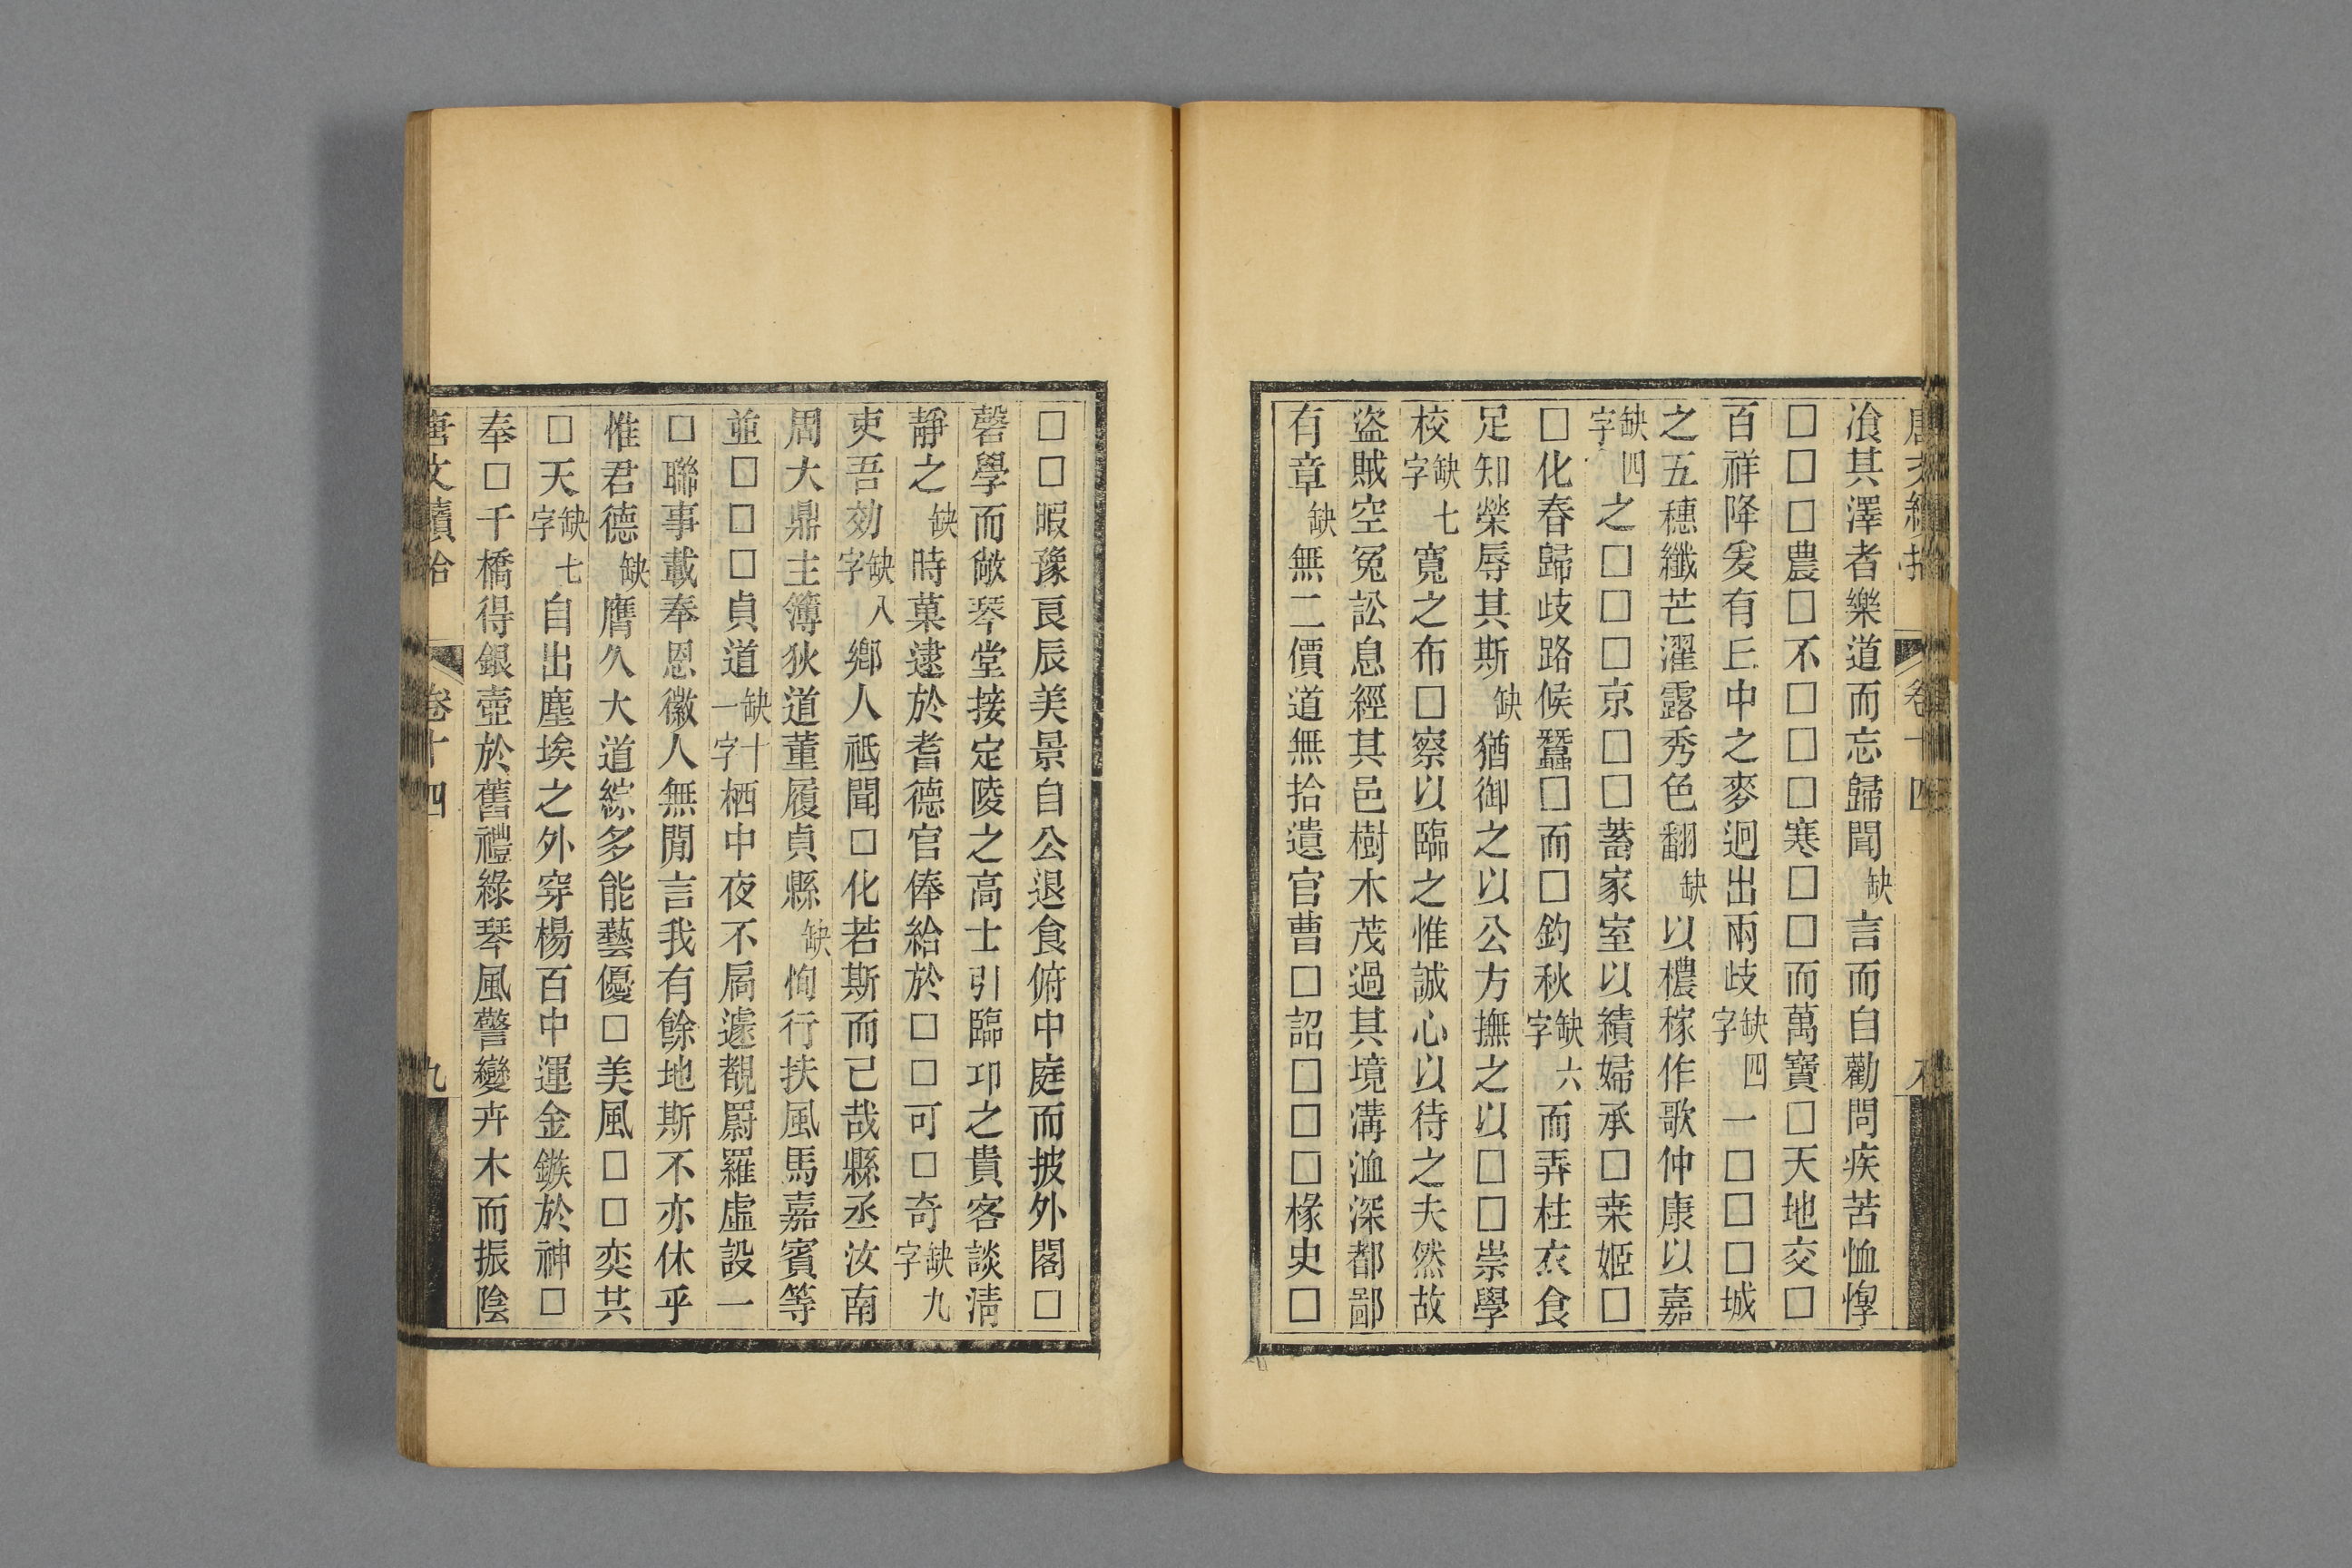 唐文續拾 卷十四 八
飡其澤者樂道而忘歸聞缺言而自勸問疾苦恤惸
□□□農□不□□□寒□□而萬寶□天地交□
百祥降爰有丘中之麥迥出兩歧缺四字一□□□城
之五穗纖芒濯露秀色翻缺以穠稼作歌仲康以嘉
缺四字之□□□京□□蓄家室以績婦承□桒姬□
□化春歸歧路候蠶□而□鈞秋缺六字而弄柱衣食
足知榮辱其斯缺猶御之以公方撫之以□□崇學
校缺七字寬之布□察以臨之惟誠心以待之夫然故
盜賊空冤訟息經其邑樹木茂過其境溝洫深都鄙
有章缺無二價道無拾遺官曹□詔□□□椽史□
□□暇豫良辰美景自公退食俯中庭而披外閣□
磬學而敞琴堂接定陵之高士引臨邛之貴客談淸
靜之缺時菓逮於耆德官俸給於□□可□奇缺九字
吏吾効缺八字鄉人祗聞□化若斯而已哉縣丞汝南
周大鼎主簿狄道董履貞縣缺恂行扶風馬嘉賓等
並□□□貞道缺十一字栖中夜不扃遽覩罻羅虛設一
□聯事載奉恩徽人無閒言我有餘地斯不亦休乎
惟君德缺膺久大道綜多能藝優□美風□□奕其
□天缺七字自出塵埃之外穿楊百中運金鏃於神□
奉□千橋得銀壺於舊禮綠琴風警變卉木而振陰
唐文續拾 卷十四 九